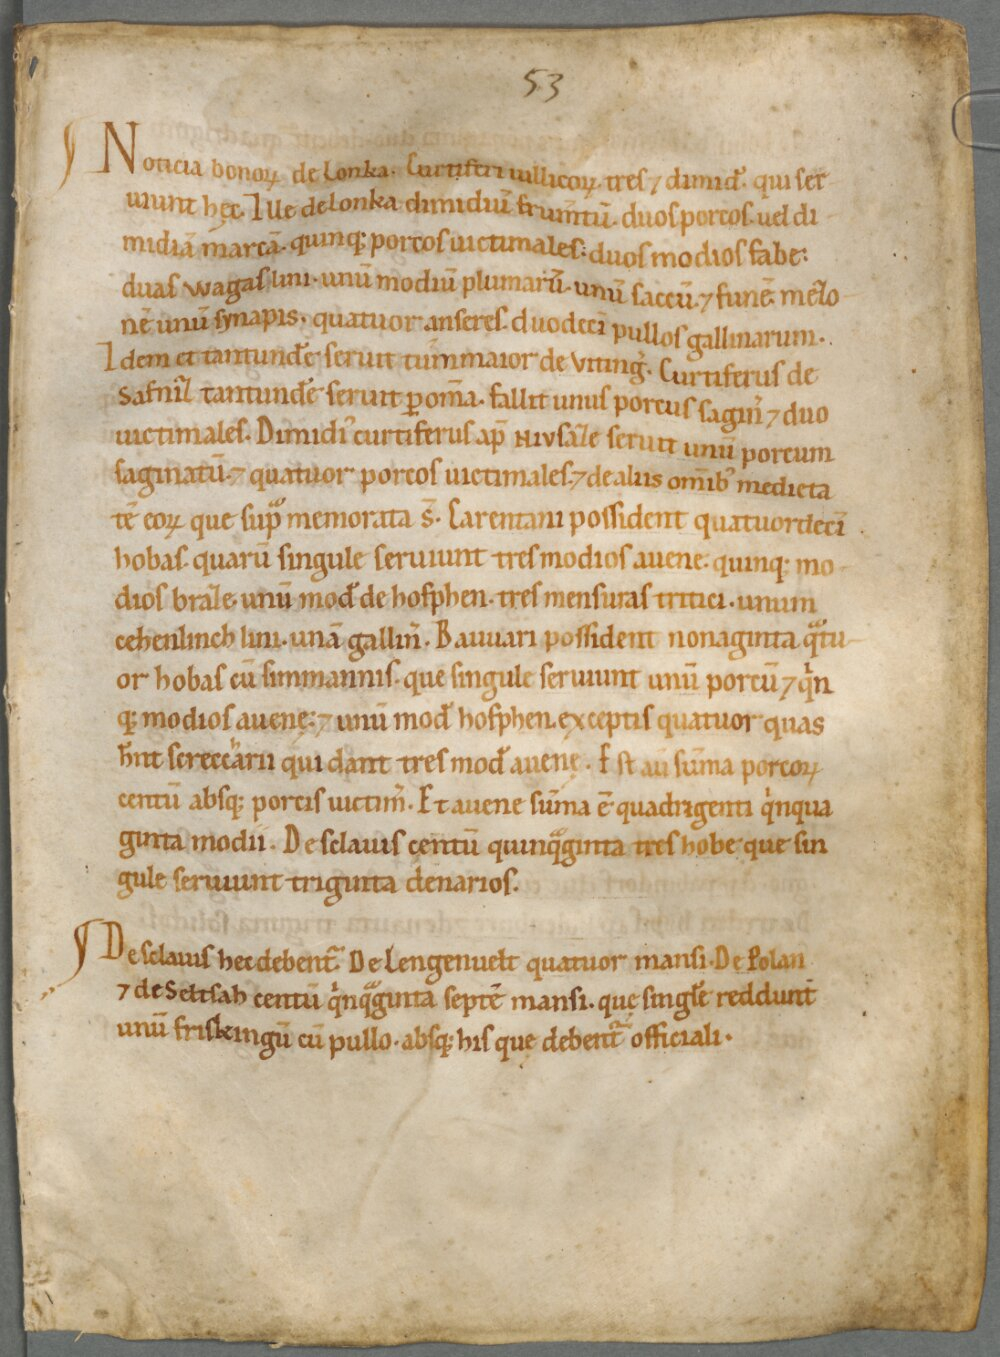 53
Noticia bonoꝝ de Lonka. Curtiferi uillicoꝝ tres ⁊ dimid̄. qui ser
uiunt hęc. Ille de Lonka dimidiū frum̄tū. duos porcos. uel di
midiā marcā. quinq; porcos uictimales: duos modios fabe:
duas wagas lini. unū modiū plumarū. unū saccū. ⁊ funē. melo
nē unū synapis. quatuor anseres. duodecī pullos gallinarum.
Idem et tantundē seruit tūm maior de Viting̅. Curtiferus de
Safnil̄ tantundē seruit ꝑ om̄a. fallit unus porcus sagin̄ ⁊ duo
uictimales. Dimidiꝰ curtiferus ap̄ Nivsāle seruit unū porcum
saginatū. ⁊ quatuor porcos uictimales. ⁊ de aliis om̄ibꝰ medieta
tē eoꝝ que sup̱ͣ memorata s̄. Carentani possident quatuordecī
hobas. quarū singule seruiunt tres modios auene. quinq; mo
dios brāle. unū mod̄ de hosphen. tres mensuras tritici. unum
cehenlinch lini. unā gallin̄. Bauuari possident nonaginta qͣtu
or hobas cū simmannis. que singule seruiunt unū porcū ⁊ qͥn
q; modios auenę: ⁊ unū mod̄ hosphen. exceptis quatuor quas
hn̄t screccᷓrii qui dant tres mod̄ auenę. Est aū sūma porcoꝝ
centū absq; porcis uictim̄. Et auene sūma ē quadrigenti qͥnqua
ginta modii. De sclauis centū quinqͣginta tres hobe que sin
gule seruiunt triginta denarios.
De sclauis hec debent᷑. De Lengenuelt quatuor mansi. De Polan
⁊ de Seltsah centū qͥnqͣginta septē mansi. que singłe reddunt
unū friskingū cū pullo. absq; his quę debent᷑ officiali.